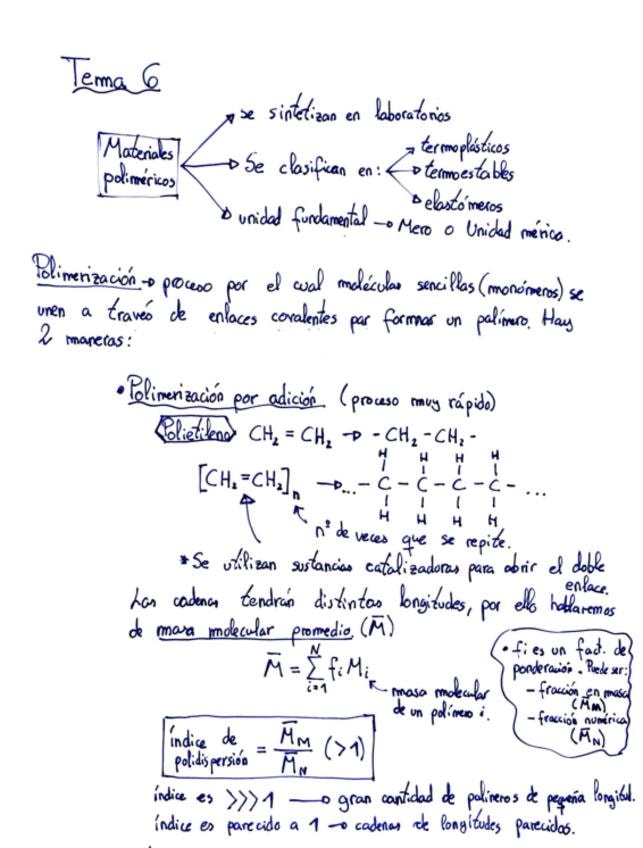 Tema 6
Materiales
poliméricos
se sintetizan en laboratorios
Se clasifican en:
termoplásticos
termoestables
elastómeros
unidad fundamental → Mero o Unidad mérica.
Polimerización → proceso por el cual moléculas sencillas (monómeros) se
unen a través de enlaces covalentes par formar un polímero. Hay
2 maneras:
• Polimerización por adición (proceso muy rápido)
Polietileno CH₂ = CH₂ → - CH₂ - CH₂ -
H H H H
[CH₂=CH₂]n → ... - C - C - C - C - ...
H H H H
nº de veces que se repite.
* Se utilizan sustancias catalizadoras para abrir el doble
enlace.
Las cadenas tendrán distintas longitudes, por ello hablaremos
de masa molecular promedio (M̄)
M̄ = Σ_{i=1}^{N} fᵢ Mᵢ
masa molecular
de un polímero i.
• fi es un fact. de
ponderación. Puede ser:
- fracción en masa
(M̄_M)
- fracción numérica
(M̄_N)
índice de
polidispersión = M̄_M / M̄_N (>1)
índice es >>>1 → gran cantidad de polímeros de pequeña longitud.
índice es parecido a 1 → cadenas de longitudes parecidas.